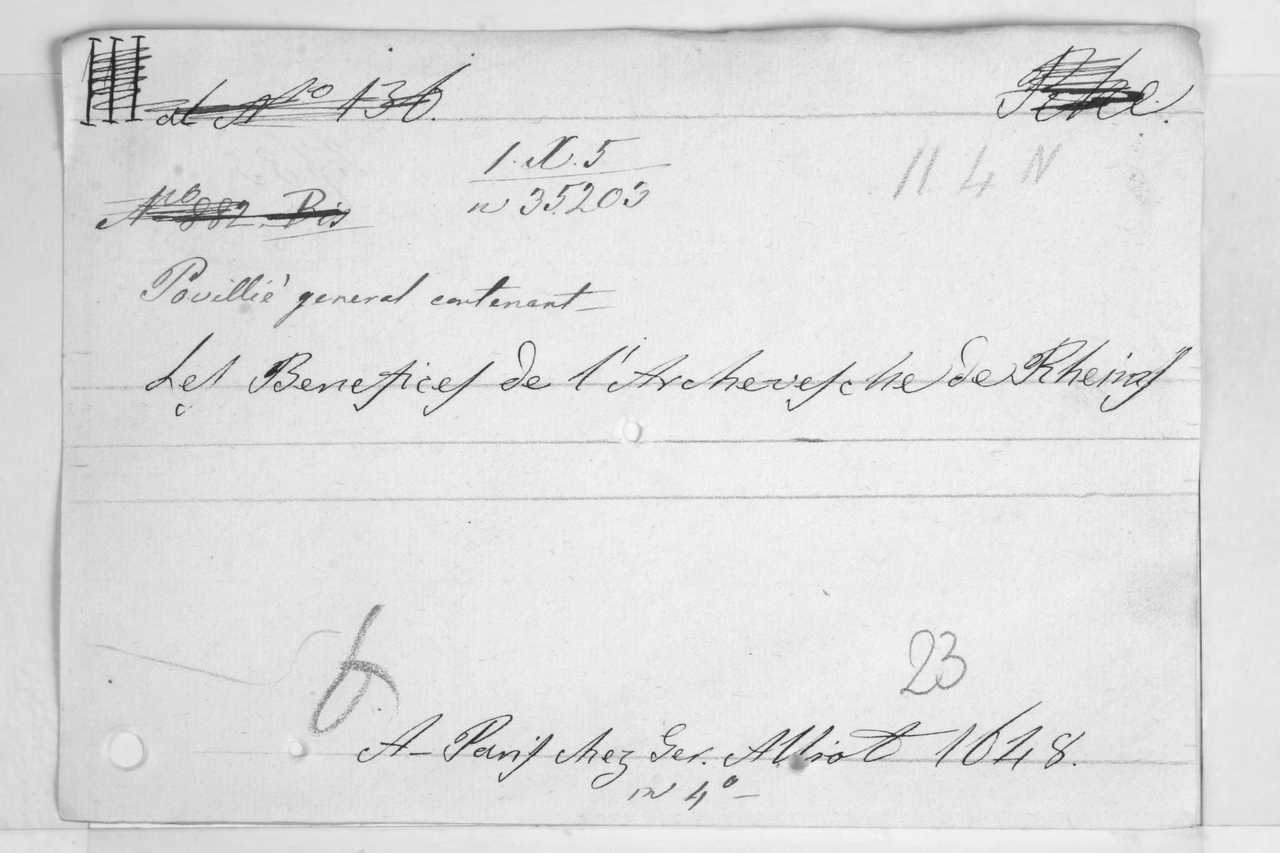 III ad Nro 136.
1. X. 5
n 35203
11. 4 N
Nro 882. Bis
Povillié general contenant
Les Benefices de l'Archevesche de Rheims
6
23
A Paris chez Ger. Alliot 1648.
in 4o